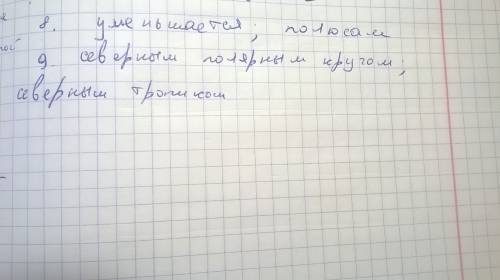 8. уменьшается; полюсам
9. северным полярным кругом;
северным тропиком